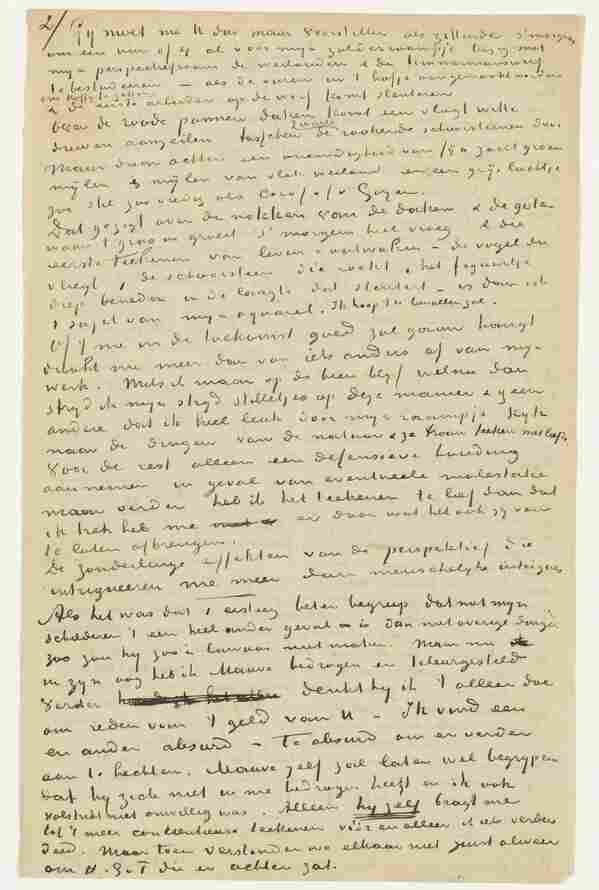 2/ Gij moet me U dus maar voorstellen als zittende s'morgens
om een uur of 4 al voor mijn zolderraampje bezig met
mijn perspectiefraam de weilanden & de timmermanswerf
te bestudeeren – als de vuren in 't hofje aangemaakt worden
om koffij te zetten
& de eerste arbeider op de werf komt slenteren
Over de roode pannen daken komt een vlugt witte
duiven aanzeilen tusschen de rookende zwarte schoorsteenen door.
Maar daar achter een oneindigheid van fijn zacht groen
mijlen & mijlen van vlak weiland en een grijs luchtje
zoo stil zoo vredig als Corot of v Goyen.
Dat gezigt over de nokken van de daken & de goten
waar 't gras in groeit s' morgens heel vroeg & die
eerste teekenen van leven & ontwaken – de vogel die
vliegt, de schoorsteen die rookt, het figuurtje
diep beneden in de laagte dat slentert – is dan ook
't sujet van mijn aquarel. Ik hoop ze bevallen zal.
Of 't me in de toekomst goed zal gaan hangt
dunkt me meer dan van iets anders af van mijn
werk. Mits ik maar op de been blijf welnu dan
strijd ik mijn strijd stilletjes op deze manier & geen
andere dat ik heel leuk door mijn raampje kijk
naar de dingen van de natuur & ze trouw teeken met liefde
voor de rest alleen een defensieve houding
aannemen in geval van eventueele molestatie
maar verder heb ik het teekenen te lief dan dat
ik trek heb me er door wat het ook zij van
te laten afbrengen.
De zonderlinge effekten van de perspektief die
intrigueeren me meer dan menschelijke intrigues
Als het was dat T eersteeg beter begreep dat met mijn
schilderen 't een heel ander geval is dan met overige dingen
zoo zou hij zoo'n lawaai niet maken. Maar nu
in zijn oog heb ik Mauve bedrogen en teleurgesteld
Verder denkt hij ik 't alleen doe
om reden van 't geld van U – Ik vind een
en ander absurd – Te absurd om er verder
aan te hechten. Mauve zelf zal laten wel begrijpen
dat hij zich niet in me bedrogen heeft en ik ook
volstrekt niet onwillig was. Alleen hij zelf bragt me
tot 't meer conscientieuse teekenen voor en alleer ik iets verders
deed. Maar toen verstonden we elkaar niet juist alweer
om H. G. T die er achter zat.